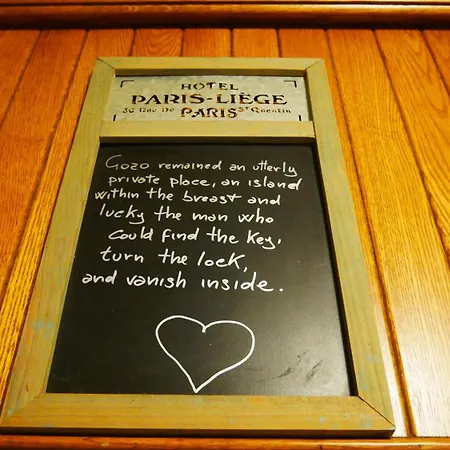 HOTEL
PARIS-LIÈGE
36 Rue De St Quentin
PARIS
Gozo remained an utterly
private place, an island
within the breast and
lucky the man who
could find the key,
turn the lock,
and vanish inside.